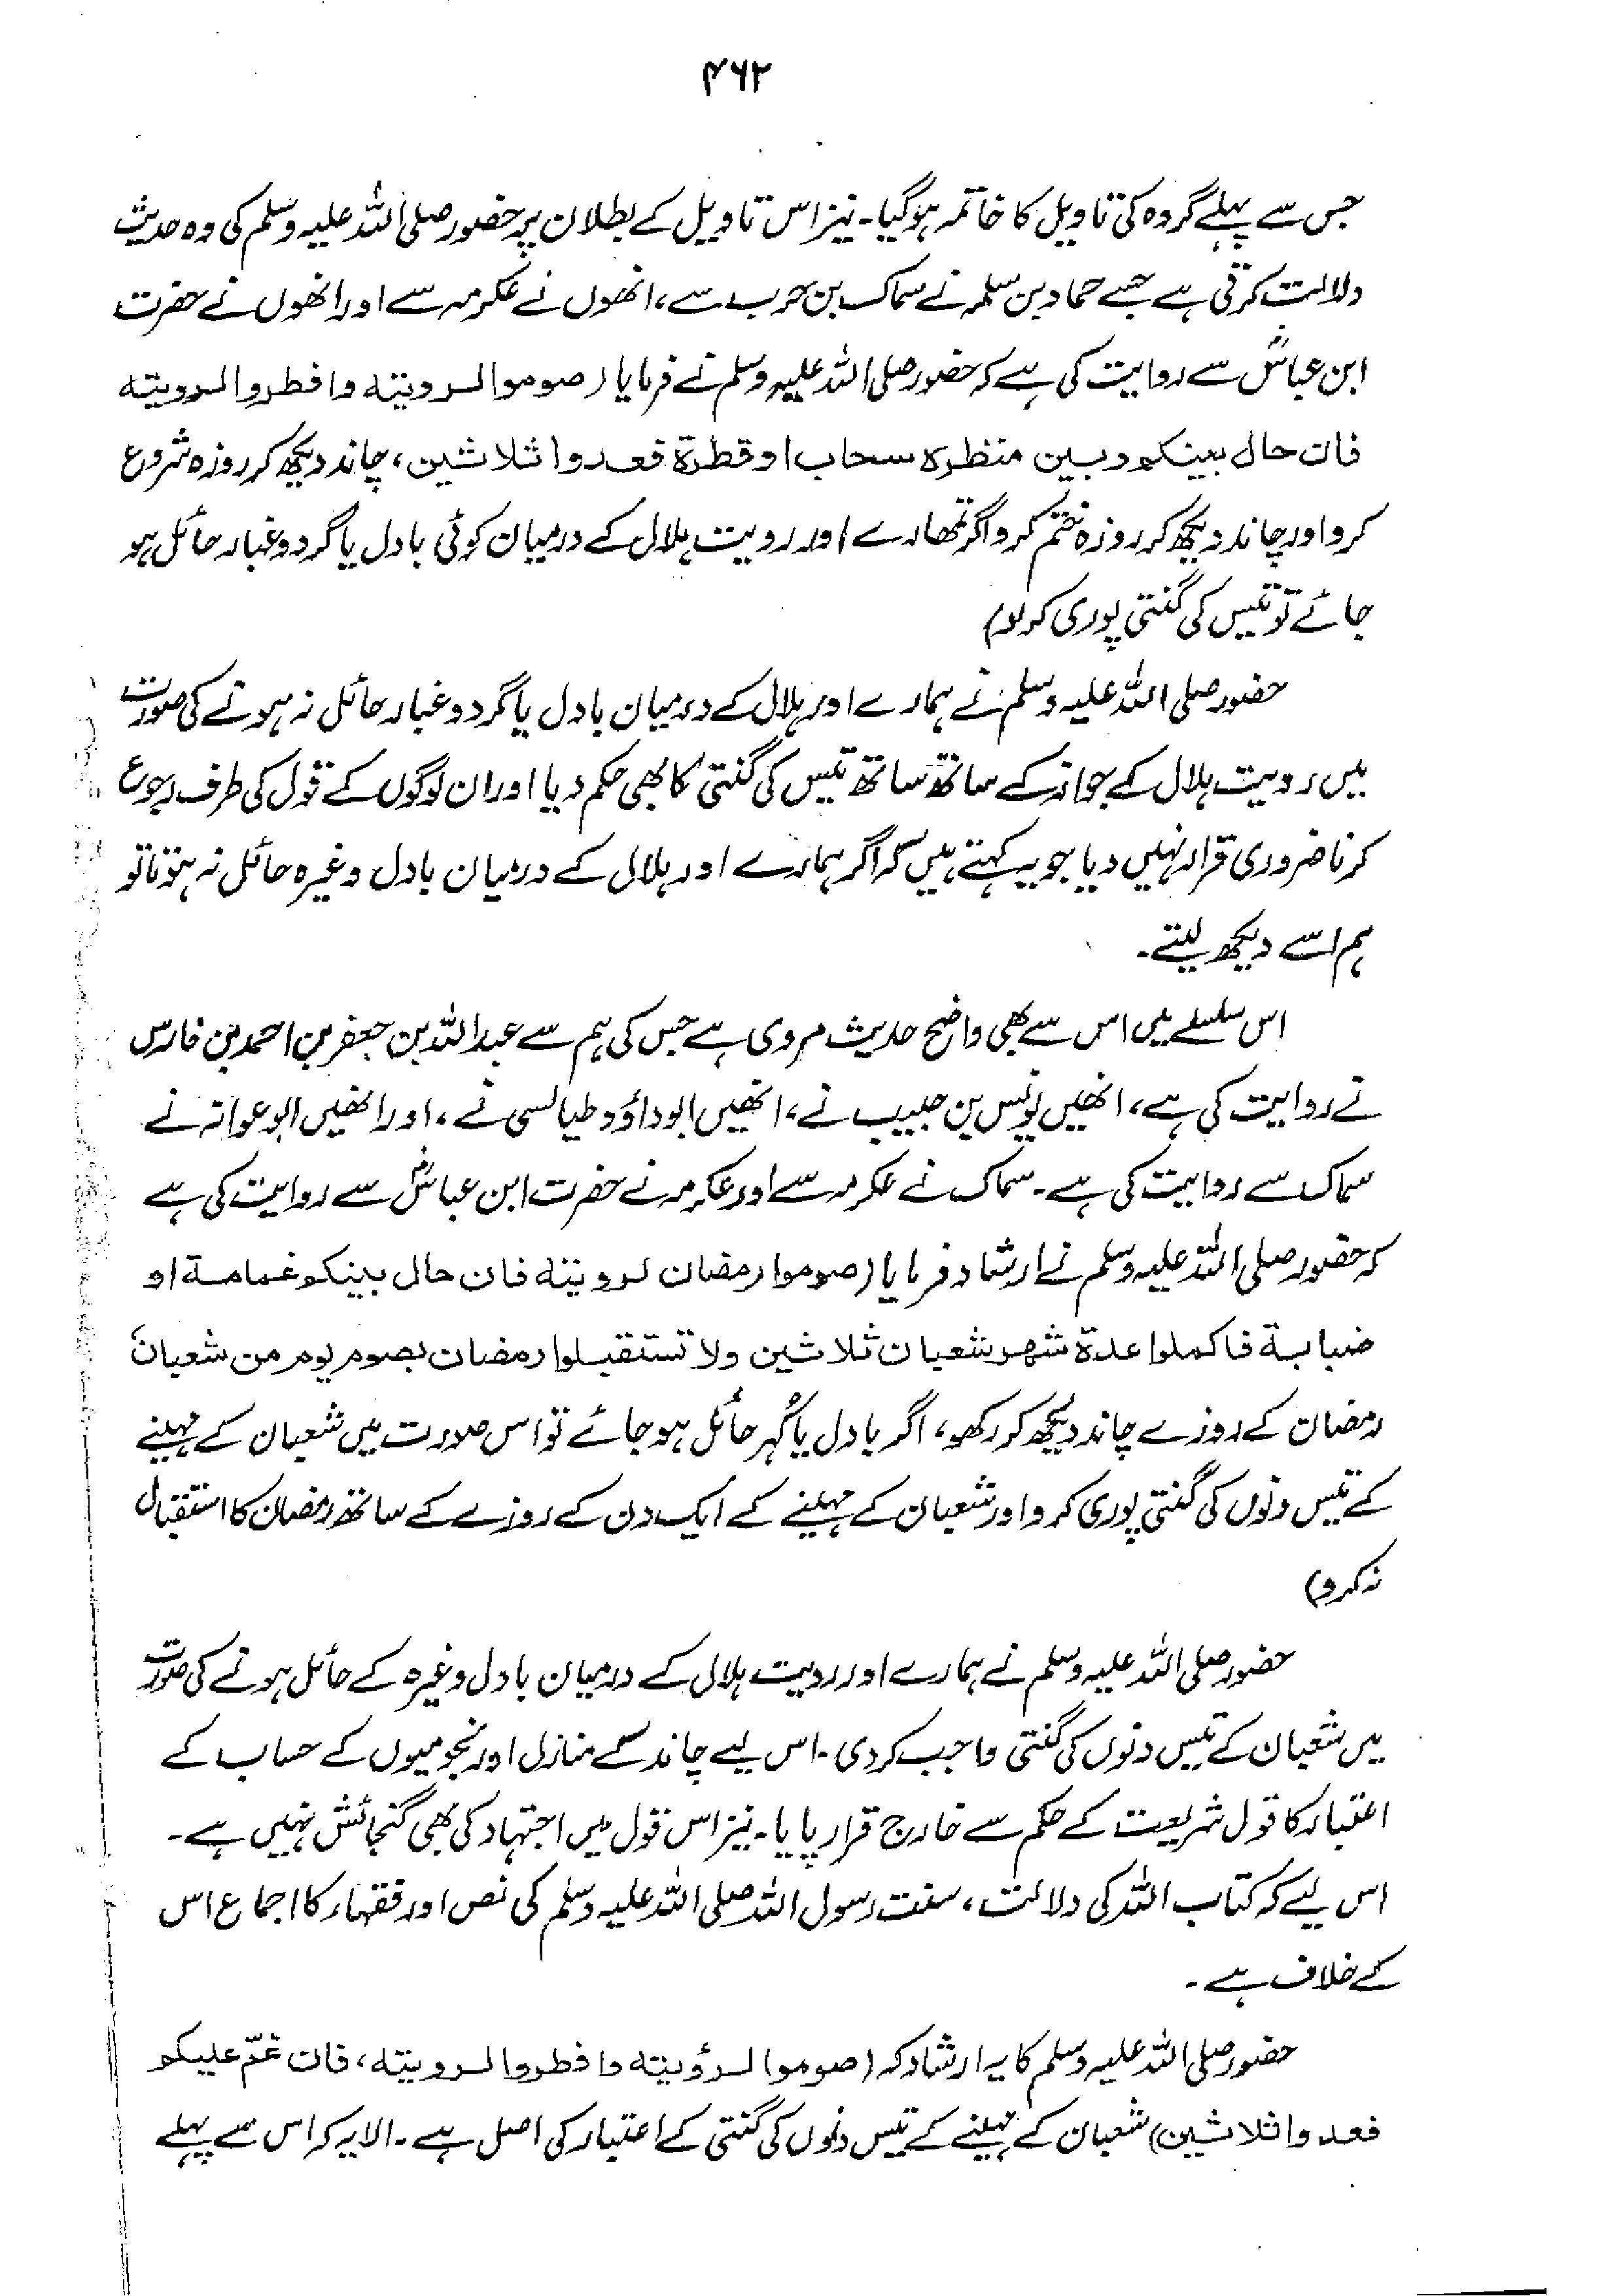 ۴۶۲
جس سے پہلے گروہ کی تاویل کا خاتمہ ہوگیا۔ نیز اس تاویل کے بطلان پر حضور صلی اللہ علیہ وسلم کی وہ حدیث
دلالت کرتی ہے جسے حماد بن سلمہ نے سماک بن حرب سے، انھوں نے عکرمہ سے اور انھوں نے حضرت
ابن عباسؓ سے روایت کی ہے کہ حضور صلی اللہ علیہ وسلم نے فرمایا (صوموا لرویتہ وافطروا لرویتہ
فان حال بینکم وبین منظرہ سحاب او قطرۃ فعدوا ثلاثین، چاند دیکھ کر روزہ شروع
کرو اور چاند دیکھ کر روزہ ختم کرو اگر تمھارے اور رویت ہلال کے درمیان کوئی بادل یا گرد و غبار حائل ہو
جائے تو تیس کی گنتی پوری کر لو)
حضور صلی اللہ علیہ وسلم نے ہمارے اور ہلال کے درمیان بادل یا گرد و غبار حائل نہ ہونے کی صورت
میں رویت ہلال کے جواز کے ساتھ ساتھ تیس کی گنتی کا بھی حکم دیا اور ان لوگوں کے قول کی طرف رجوع
کرنا ضروری قرار نہیں دیا جو یہ کہتے ہیں کہ اگر ہمارے اور ہلال کے درمیان بادل وغیرہ حائل نہ ہوتا تو
ہم اسے دیکھ لیتے۔
اس سلسلے میں اس سے بھی واضح حدیث مروی ہے جس کی ہم سے عبداللہ بن جعفر بن احمد بن فارس
نے روایت کی ہے، انھیں یونس بن حبیب نے، انھیں ابوداؤد طیالسی نے، اور انھیں ابوعوانہ نے
سماک سے روایت کی ہے۔ سماک نے عکرمہ سے اور عکرمہ نے حضرت ابن عباسؓ سے روایت کی ہے
کہ حضور صلی اللہ علیہ وسلم نے ارشاد فرمایا (صوموا رمضان لرویتہ فان حال بینکم غمامۃ او
ضبابۃ فاکملوا عدۃ شھر شعبان ثلاثین ولا تستقبلوا رمضان بصوم یوم من شعبان
رمضان کے روزے چاند دیکھ کر رکھو، اگر بادل یا کُہر حائل ہو جائے تو اس صورت میں شعبان کے مہینے
کے تیس دنوں کی گنتی پوری کرو اور شعبان کے مہینے کے ایک دن کے روزے کے ساتھ رمضان کا استقبال
نہ کرو)
حضور صلی اللہ علیہ وسلم نے ہمارے اور رویت ہلال کے درمیان بادل وغیرہ کے حائل ہونے کی صورت
میں شعبان کے تیس دنوں کی گنتی واجب کر دی۔ اس لیے چاند کے منازل اور نجومیوں کے حساب کے
اعتبار کا قول شریعت کے حکم سے خارج قرار پایا۔ نیز اس قول میں اجتہاد کی بھی گنجائش نہیں ہے۔
اس لیے کہ کتاب اللہ کی دلالت، سنت رسول اللہ صلی اللہ علیہ وسلم کی نص اور فقہاء کا اجماع اس
کے خلاف ہے۔
حضور صلی اللہ علیہ وسلم کا یہ ارشاد کہ (صوموا لرؤیتہ وافطروا لرویتہ، فان غمّ علیکم
فعدوا ثلاثین) شعبان کے مہینے کے تیس دنوں کی گنتی کے اعتبار کی اصل ہے۔ الا یہ کہ اس سے پہلے